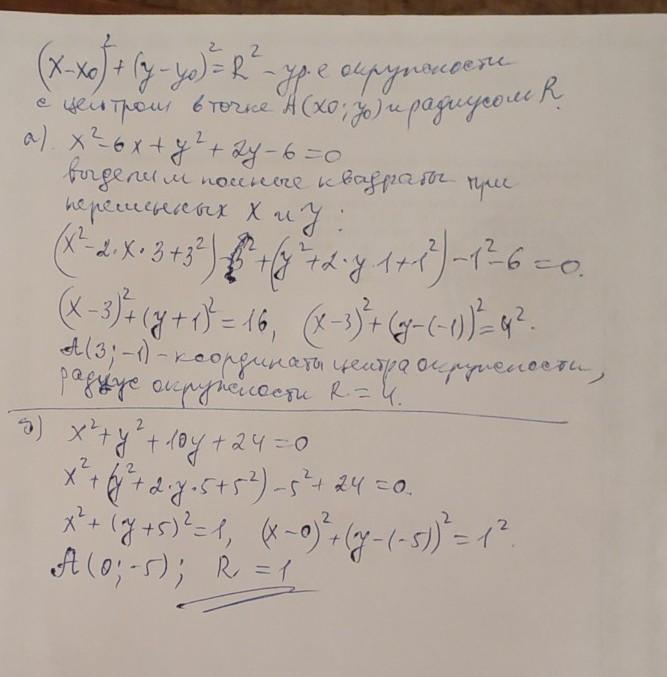 (x-x₀)²+(y-y₀)²=R² - ур-е окружности
с центром в точке A(x₀; y₀) и радиусом R.
а). x²-6x+y²+2y-6=0
выделим полные квадраты при
переменных x и y:
(x²-2·x·3+3²)-3²+(y²+2·y·1+1²)-1²-6=0.
(x-3)²+(y+1)²=16, (x-3)²+(y-(-1))²=4².
A(3; -1) - координаты центра окружности,
радиус окружности R=4.
б) x²+y²+10y+24=0
x²+(y²+2·y·5+5²)-5²+24=0.
x²+(y+5)²=1, (x-0)²+(y-(-5))²=1².
A(0; -5); R=1